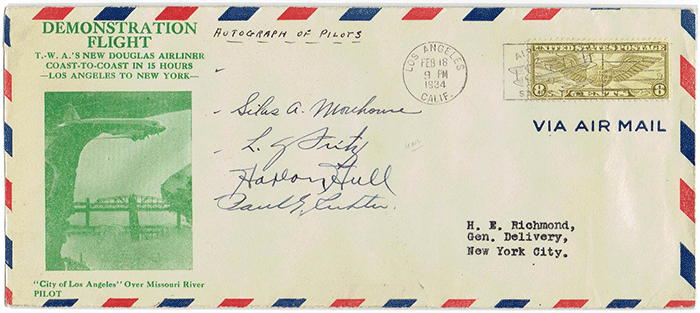 DEMONSTRATION
FLIGHT
T.-W. A.'S NEW DOUGLAS AIRLINER
COAST-TO-COAST IN 15 HOURS
—LOS ANGELES TO NEW YORK—
"City of Los Angeles" Over Missouri River
PILOT
AUTOGRAPH OF PILOTS
LOS ANGELES
FEB 18
9 PM
1934
CALIF.
AIR
UNITED STATES POSTAGE
8 CENTS 8
VIA AIR MAIL
Silas A. Morehouse
L. G. Fritz
Harlan Hull
Paul E. Richter
H. E. Richmond,
Gen. Delivery,
New York City.